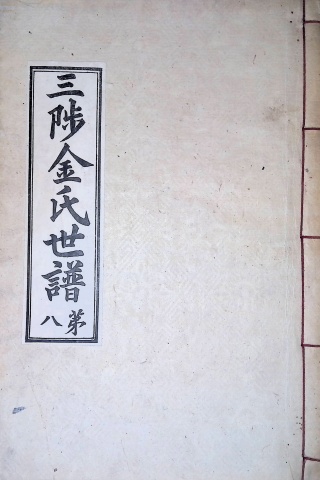 三陟金氏世譜
第八